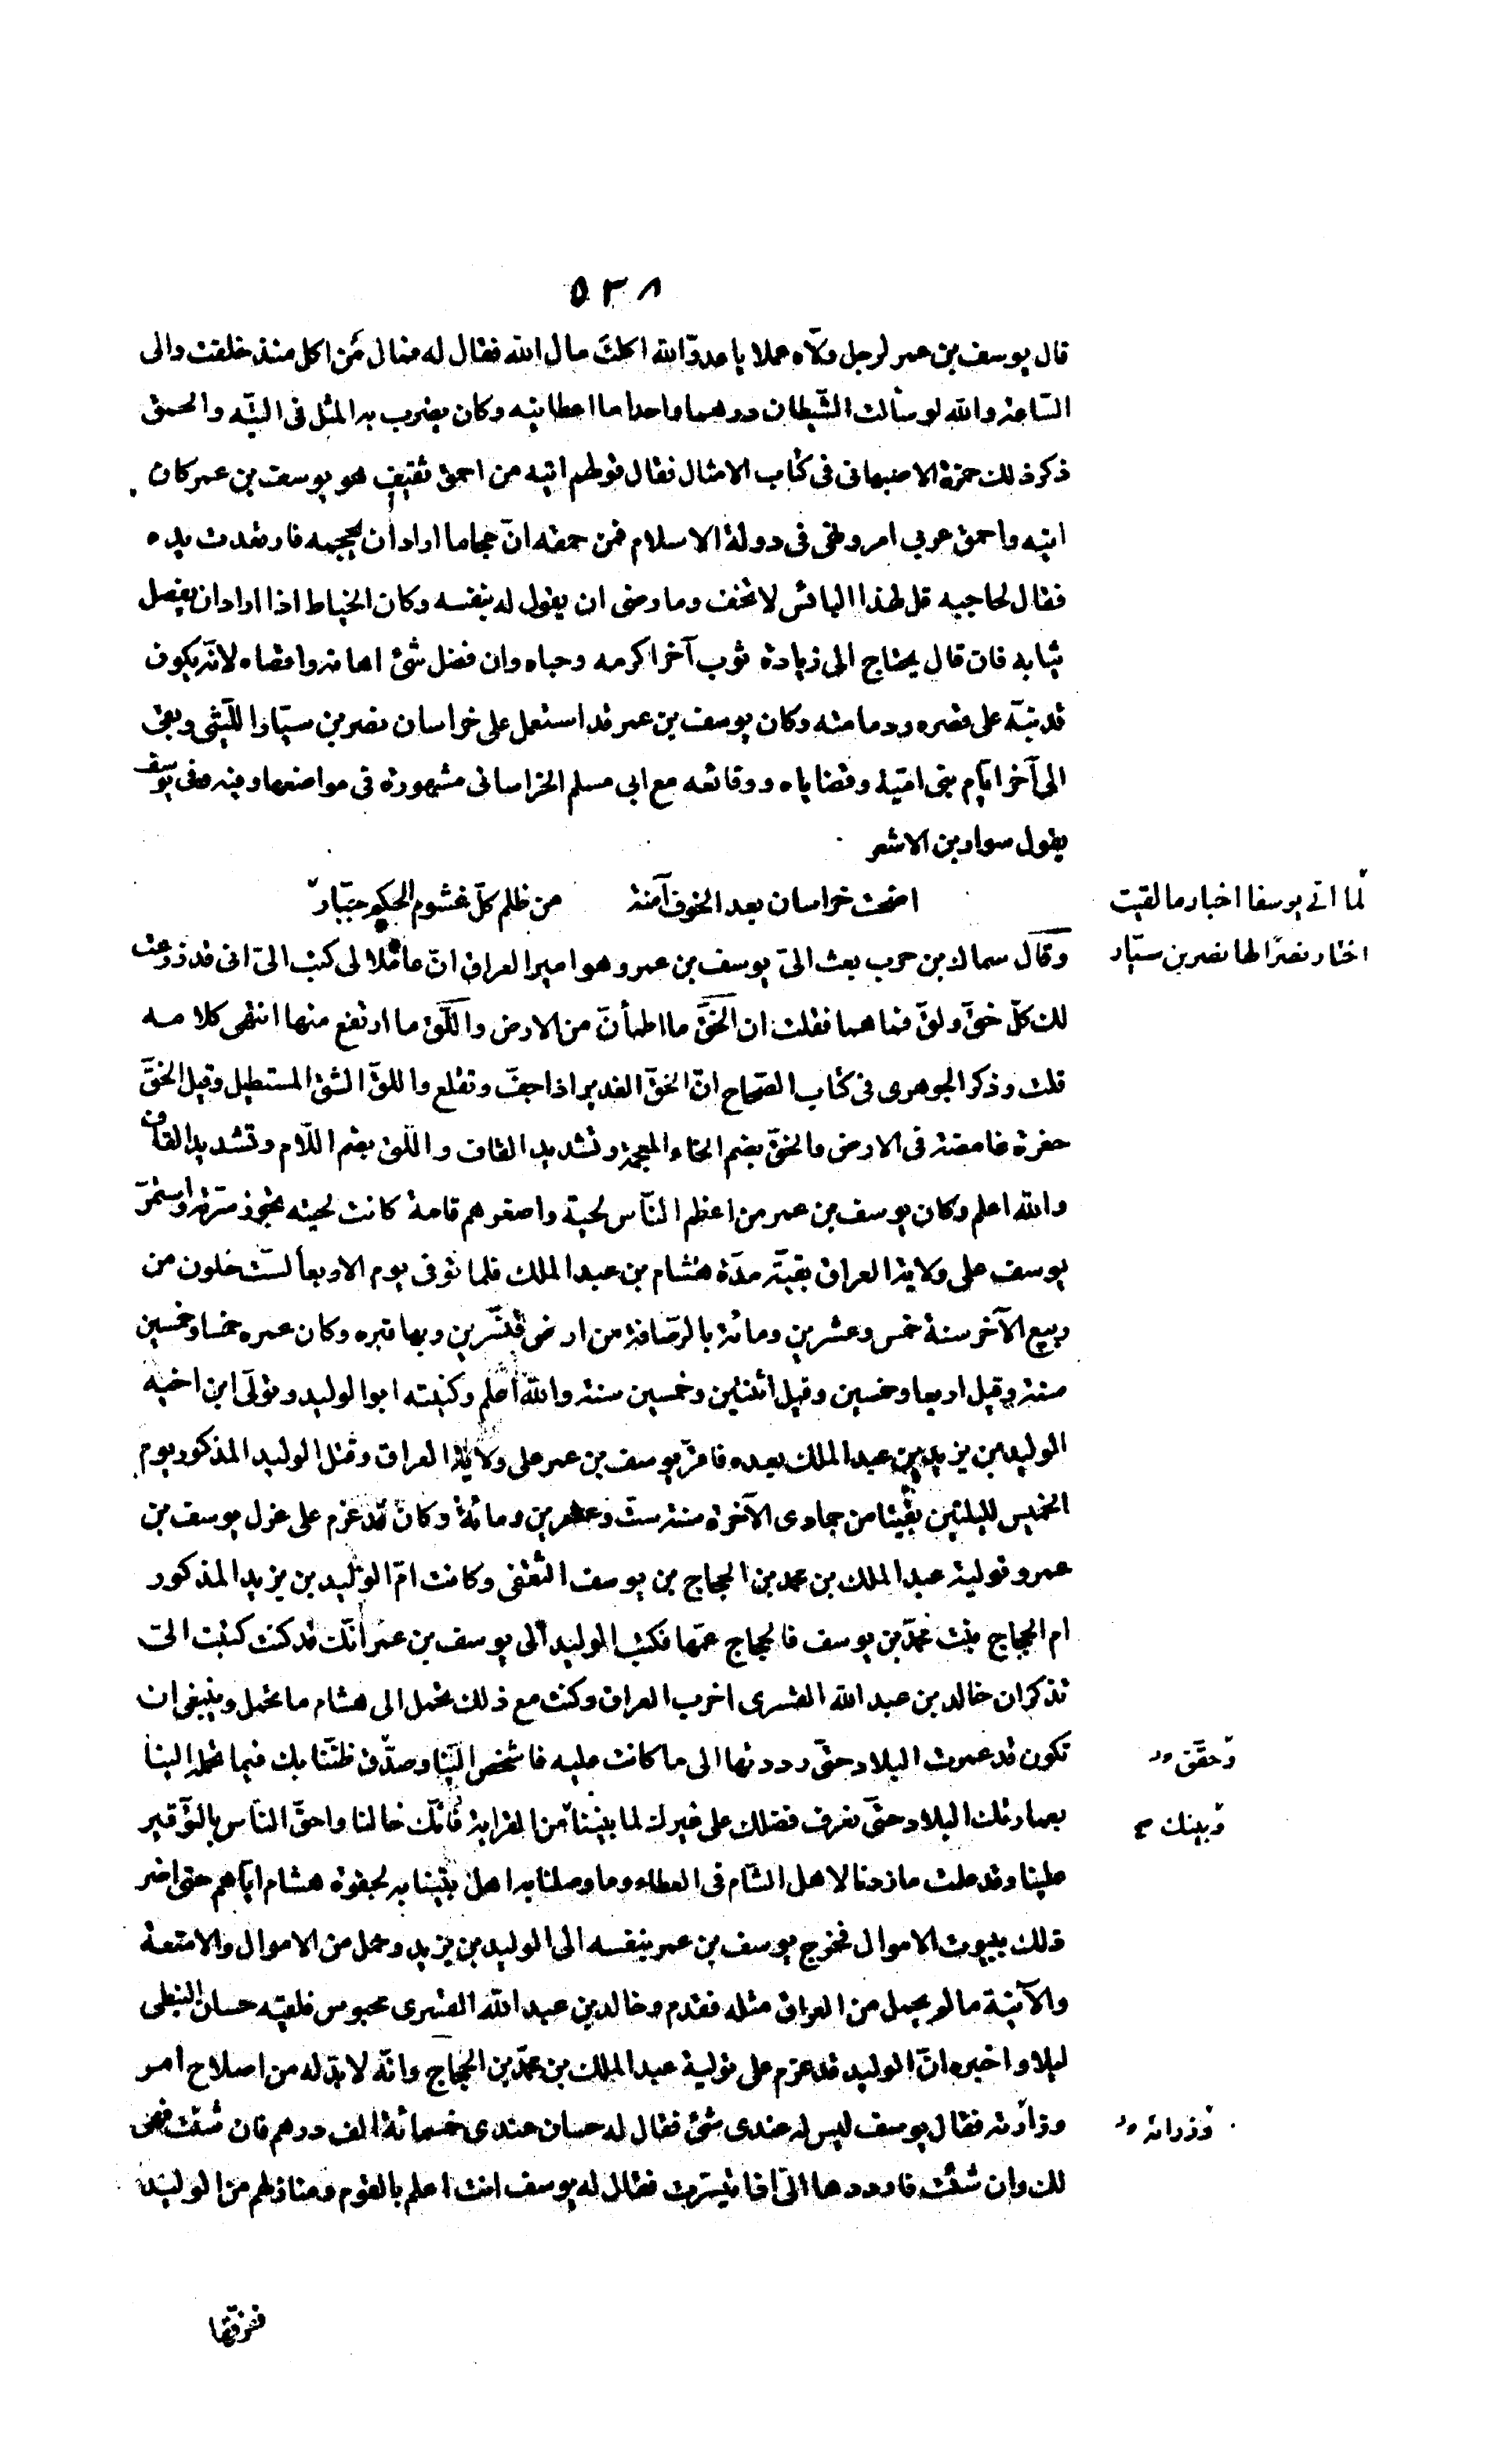 ٥٣٨
قال يوسف بن عمر لرجل ولّاه عملا يا عدوّ الله اكلت مال الله فقال له فمال مَن اكل منذ خلقت والى
السّاعة والله لو سألت الشّيطان درهما واحدا ما اعطانيه وكان يضرب به المثل فى التيّه والحمق
ذكر ذلك حمزة الاصبهانى فى كتاب الامثال فقال قولهم اتيه من احمق ثقيف هو يوسف بن عمر كان
اتيه واحمق عربى امر ونهى فى دولة الاسلام فمن حمقه انّ حجاما اراد أن يحجمه فارتعدت يده
فقال لحاجبه قل لهذا البائس لا تخف وما رضى ان يقول له بنفسه وكان الخياط اذا اراد ان يفصل
ثيابه فان قال يحتاج الى زيادة ثوب آخر اكرمه وحباه وان فضل شئ اهانه واقصاه لانّه يكون
قد نبّه على قصره ودمامته وكان يوسف بن عمر قد استعمل على خراسان نصر بن سيّار الليّثى وبقى
الى آخر ايّام بنى اميّة وقضاياه ووقائعه مع ابى مسلم الخراسانى مشهورة فى مواضعها وفيه وفى يوسف
يقول سوار بن الاشعر
اضحت خراسان بعد الخوف آمنة من ظلم كلّ غشوم الحكم جبّار
لمّا اتى يوسفا اخبار ما لقيت
اختار نصرًا لها نصر بن سيّار
وقال سماك بن حرب بعث الىّ يوسف بن عمر وهو امير العراق انّ عاملا لى كتب الىّ انى قد زرعت
لك كلّ خقّ ولقّ فما هما فقلت ان الخقّ ما اطمأنّ من الارض واللّقّ ما ارتفع منها انتهى كلامه
قلت وذكر الجوهرى فى كتاب الصّحاح انّ الخقّ الغدير اذا جفّ وتقلع واللقّ الشقّ المستطيل وقيل الخقّ
حفرة غامضة فى الارض والخقّ بضم الخاء المعجمة وتشديد القاف واللّق بضم اللّام وتشديد القاف
والله اعلم وكان يوسف بن عمر من اعظم النّاس لحية واصغرهم قامة كانت لحيته تجوز سرّته واستمرّ
يوسف على ولاية العراق بقيّة مدّة هشام بن عبد الملك فلما توفى يوم الاربعأ لستّ خلون من
ربيع الآخر سنة خمس وعشرين ومائة بالرصّافة من ارض قنّسرين وبها قبره وكان عمره خمسا وخمسين
سنة وقيل اربعا وخمسين وقيل اثنتين وخمسين سنة والله أعلم وكنيته ابو الوليد وتولّى ابن اخيه
الوليد بن يزيد بن عبد الملك بعده فاقرّ يوسف بن عمر على ولاية العراق وقتل الوليد المذكور يوم
الخميس لليلتين بقيتا من جمادى الآخرة سنة ستّ وعشرين ومائة وكان قد عزم على عزل يوسف بن
عمر وتولية عبد الملك بن محمد بن الحجاج بن يوسف الثقفى وكانت امّ الوليد بن يزيد المذكور
ام الحجاج بنت محمّد بن يوسف فالحجاج عمّها فكتب الوليد الى يوسف بن عمر انّك قد كنت كتبت الىّ
تذكر ان خالد بن عبد الله القسرى اخرب العراق وكنت مع ذلك تحمل الى هشام ما تحمل وينبغى ان
تكون قد عمرت البلاد حتّى رددتها الى ما كانت عليه فاشخص الينا وصدّق ظنّنا بك فيما تحمله الينا
وحقّق
بعمارتك البلاد حتّى نعرف فضلك على غيرك لما بيننا من القرابة فانّك خالنا واحقّ النّاس بالتّوقير
وبينك صح
علينا وقد علمت ما زدنا لاهل الشّام فى العطاء وما وصلنا به اهل بيتنا به لجفوة هشام ايّاهم حتى اضر
ذلك ببيوت الاموال فخرج يوسف بن عمر بنفسه الى الوليد بن يزيد وحمل من الاموال والامتعة
والآنية ما لم يحمل من العراق مثله فقدم وخالد بن عبد الله القسرى محبوس فلقيه حسان النبطى
ليلا واخبره انّ الوليد قد عزم على تولية عبد الملك بن محمّد بن الحجاج وانّه لا بدّ له من اصلاح امر
وزارته فقال يوسف ليس له عندى شئ فقال له حسان عندى خمسمائة الف درهم فان شئت فهى
وزرائه
لك وان شئت فارددها الىّ اذا تيسّرت فقال له يوسف انت اعلم بالقوم ومنازلهم من الوليد
ففرّقها